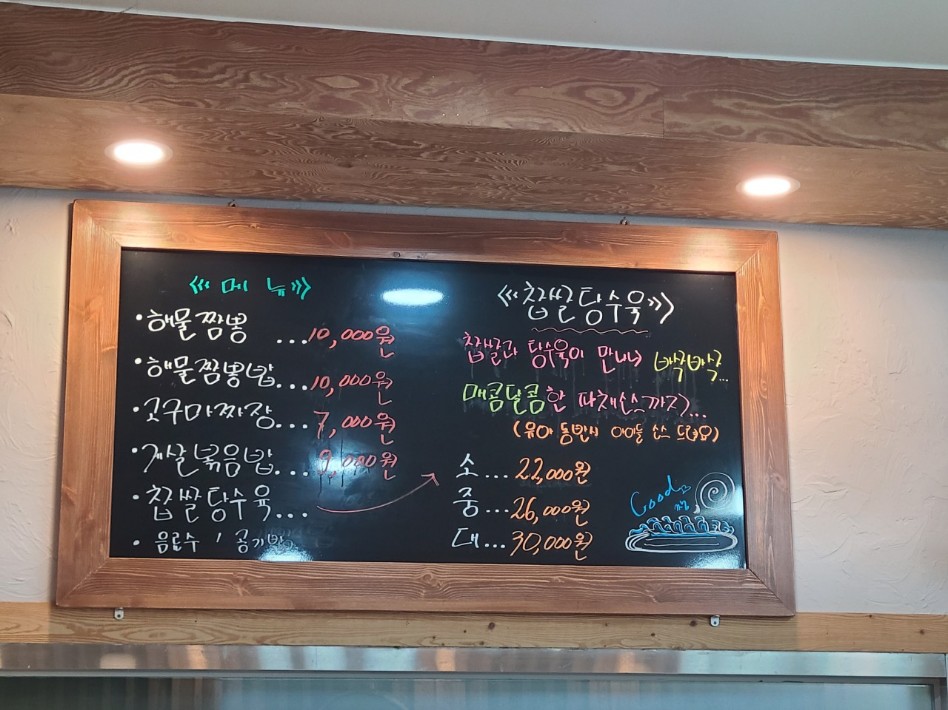 《메 뉴》
•해물짬뽕 ...10,000원
•해물짬뽕밥...10,000원
•고구마짜장...7,000원
•게살볶음밥...9,000원
•찹쌀탕수육...
•음료수 / 공기밥
《찹쌀탕수육》
찹쌀과 탕수육이 만나 바삭바삭...
매콤달콤한 파채소스까지...
(유아 동반시 아이들 소스 드려요)
소...22,000원
중...26,000원
대...30,000원
Good